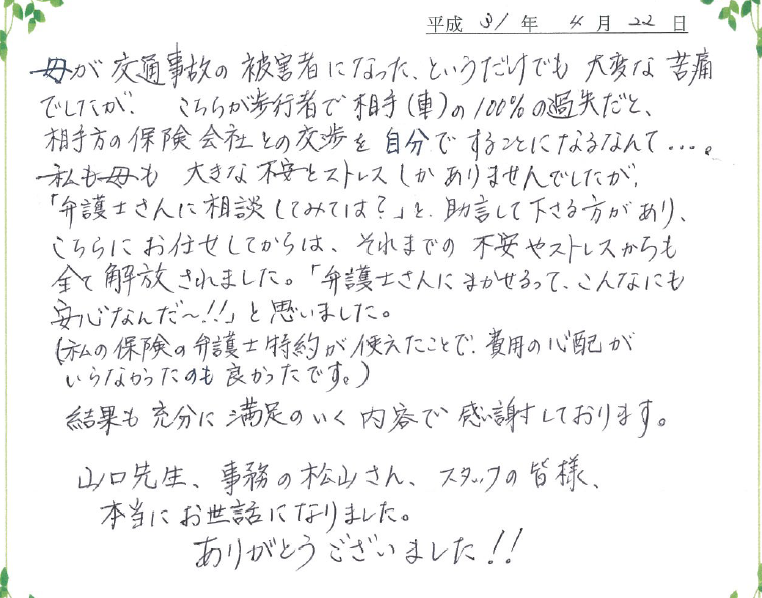 平成 31 年 4 月 22 日
母が交通事故の被害者になった、というだけでも 大変な苦痛
でしたが、こちらが歩行者で相手(車)の100%の過失だと、
相手方の保険会社との交渉を自分ですることになるなんて…。
私も母も 大きな不安とストレスしかありませんでしたが、
「弁護士さんに相談してみては?」と、助言して下さる方があり、
こちらにお任せしてからは、それまでの不安やストレスからも
全て解放されました。「弁護士さんにまかせるって、こんなにも
安心なんだ~!!」と思いました。
(私の保険の弁護士特約が使えたことで、費用の心配が
いらなかったのも良かったです。)
結果も充分に満足のいく内容で感謝しております。
山口先生、事務の松山さん、スタッフの皆様、
本当にお世話になりました。
ありがとうございました!!